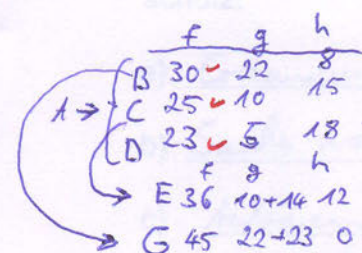 f g h
B 30 22 8
A → C 25 10 15
D 23 5 18
f g h
E 36 10+14 12
G 45 22+23 0